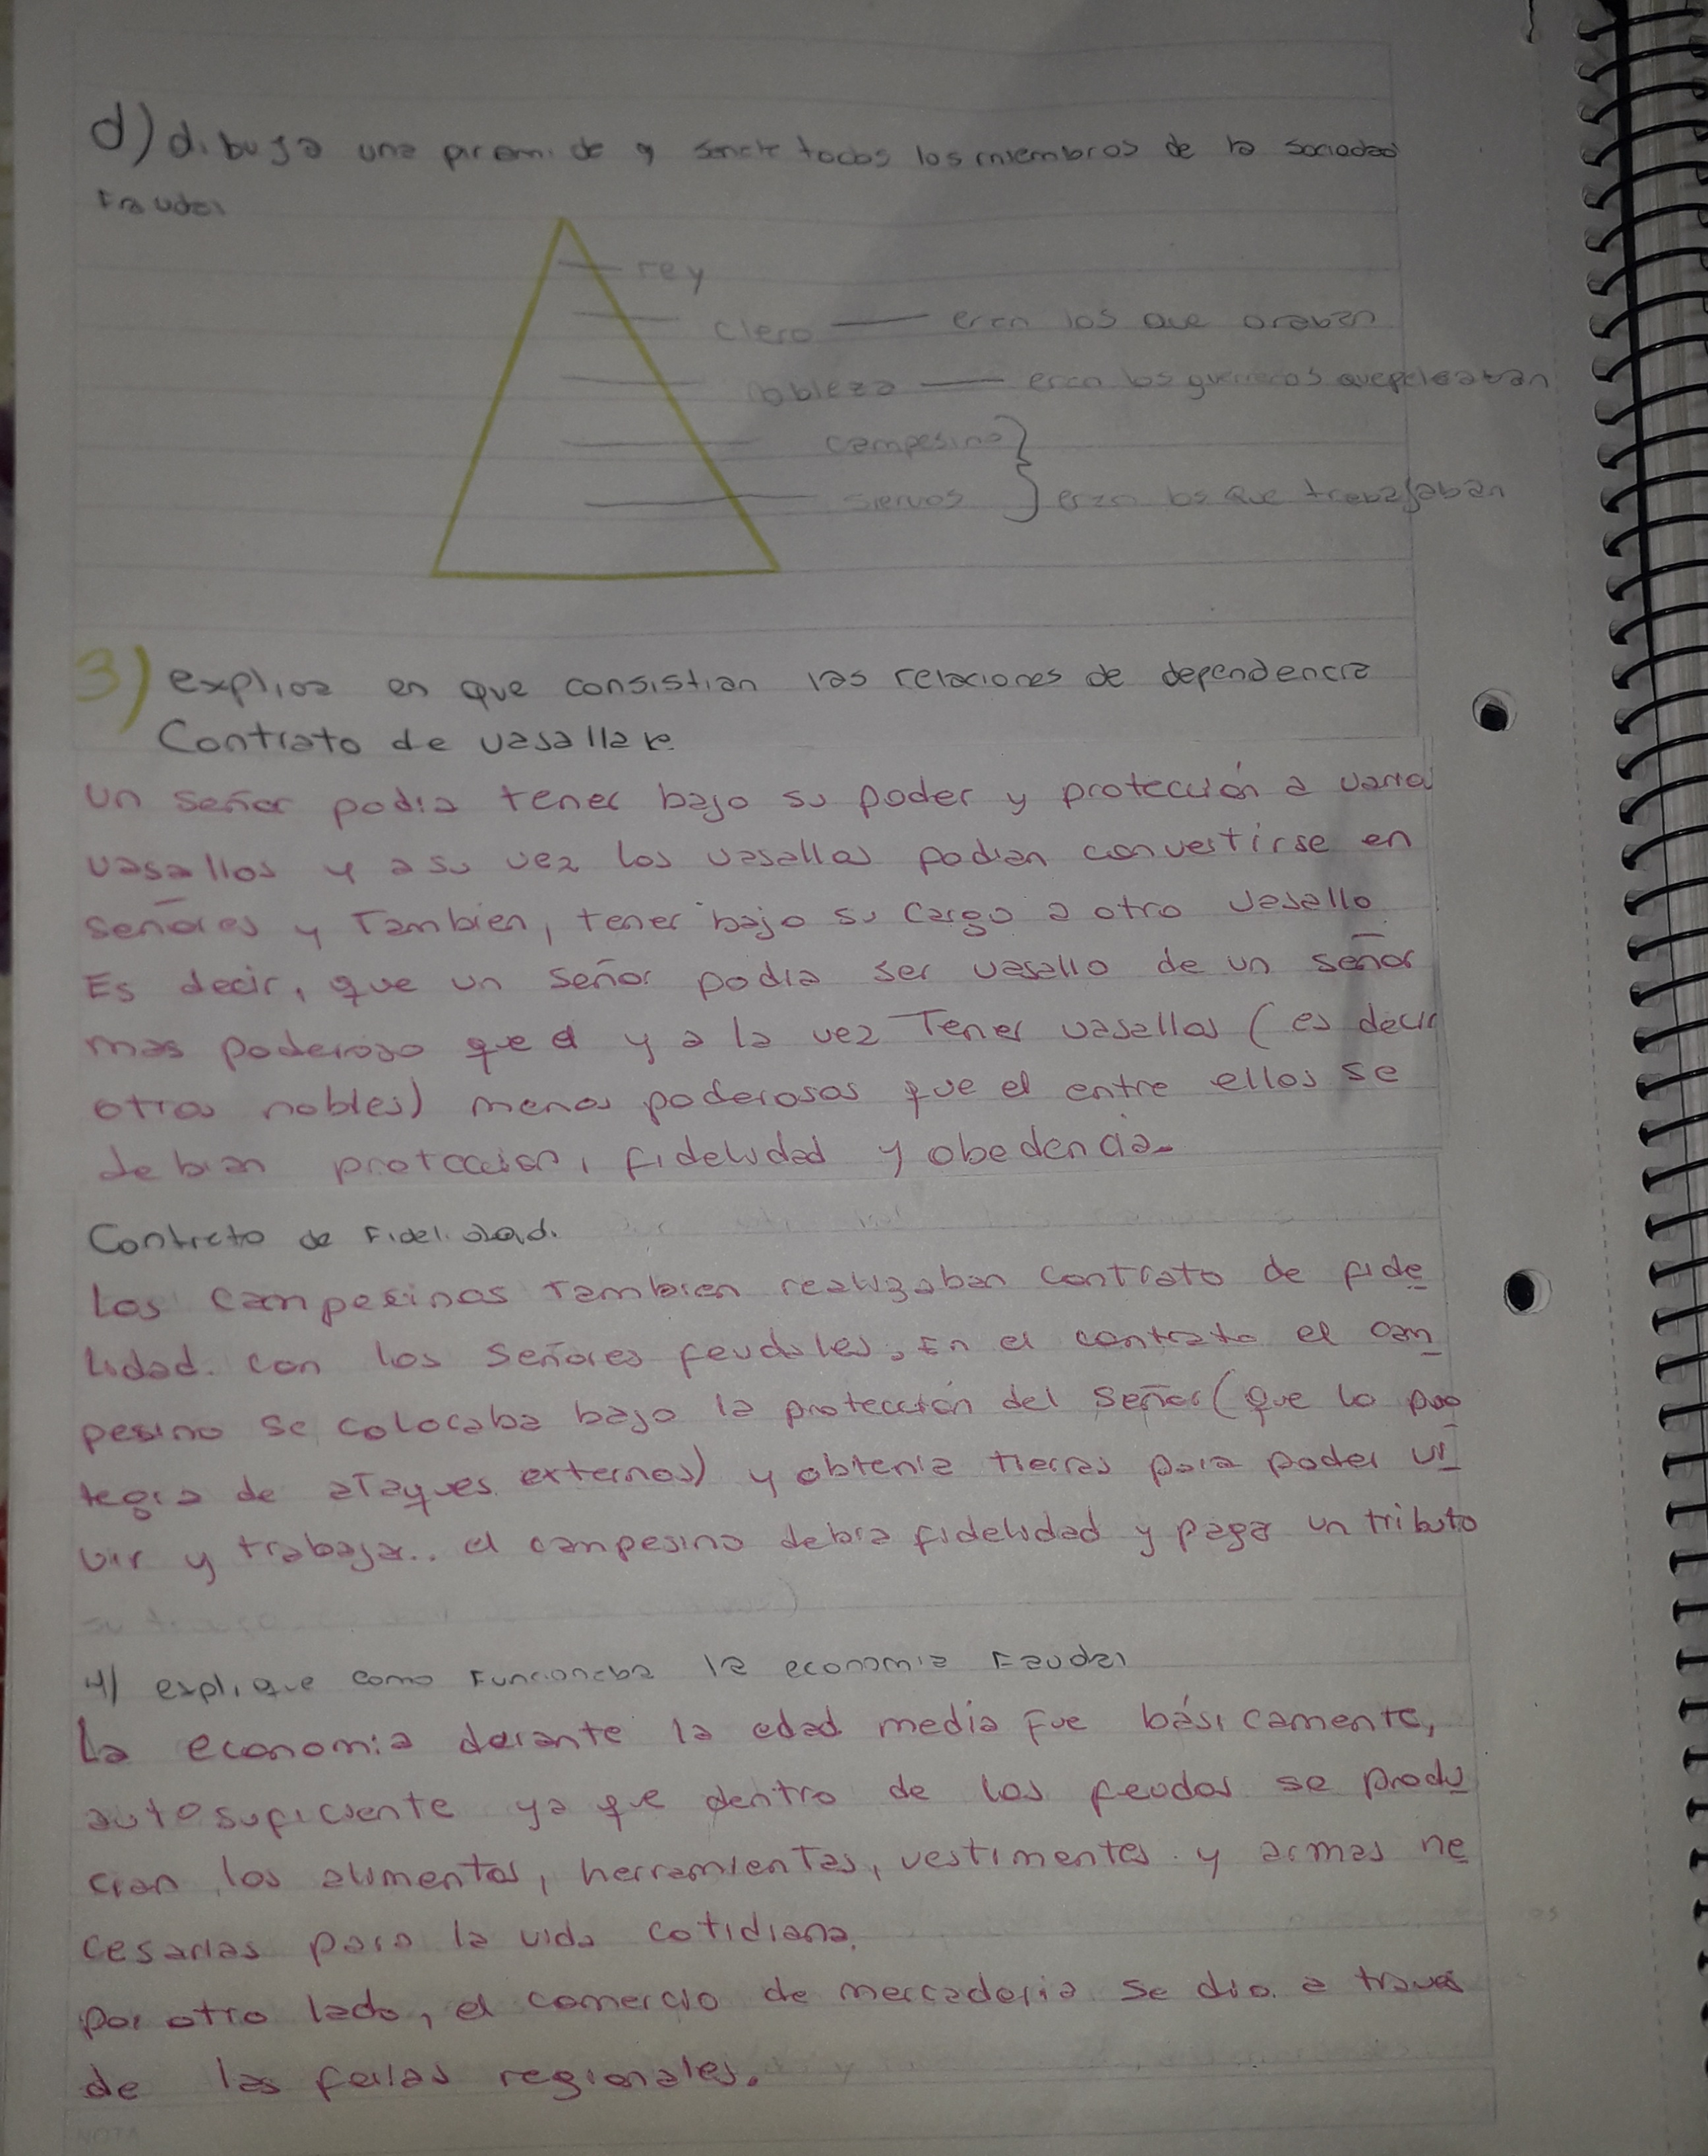 d) dibuja una piramide y señale todos los miembros de la sociedad
Fraudal
rey
clero — eran los que oraban
nobleza — eran los guerreros que peleaban
campesino
siervos } eran los que trabajaban
3) explica en que consistian las relaciones de dependencia
Contrato de vasallaje
Un señor podia tener bajo su poder y protección a varios
vasallos y a su vez los vasallos podian convertirse en
señores y Tambien, tener bajo su cargo a otro vasallo
Es decir, que un señor podia ser vasallo de un señor
mas poderoso que el y a la vez Tener vasallos (es decir
otros nobles) menos poderosos que el entre ellos se
debian protección, fidelidad y obedencia.
Contrato de Fidelidad.
Los campesinos Tambien realizaban contrato de fide
lidad. con los señores feudales, En el contrato el cam
pesino se colocaba bajo la protección del señor (que lo pro
tegia de aTaques externos) y obtenia tierras para poder vi
vir y trabajar.. el campesino debia fidelidad y pagar un tributo
4) explique como Funcionaba la economia Feudal
La economia durante la edad media fue básicamente,
autosuficiente ya que dentro de los feudos se produ
cian los alimentos, herramienTas, vestimentas y armas ne
cesarias para la vida cotidiana.
Por otro lado, el comercio de mercaderia se dio a traves
de las ferias regionales.
NOTA